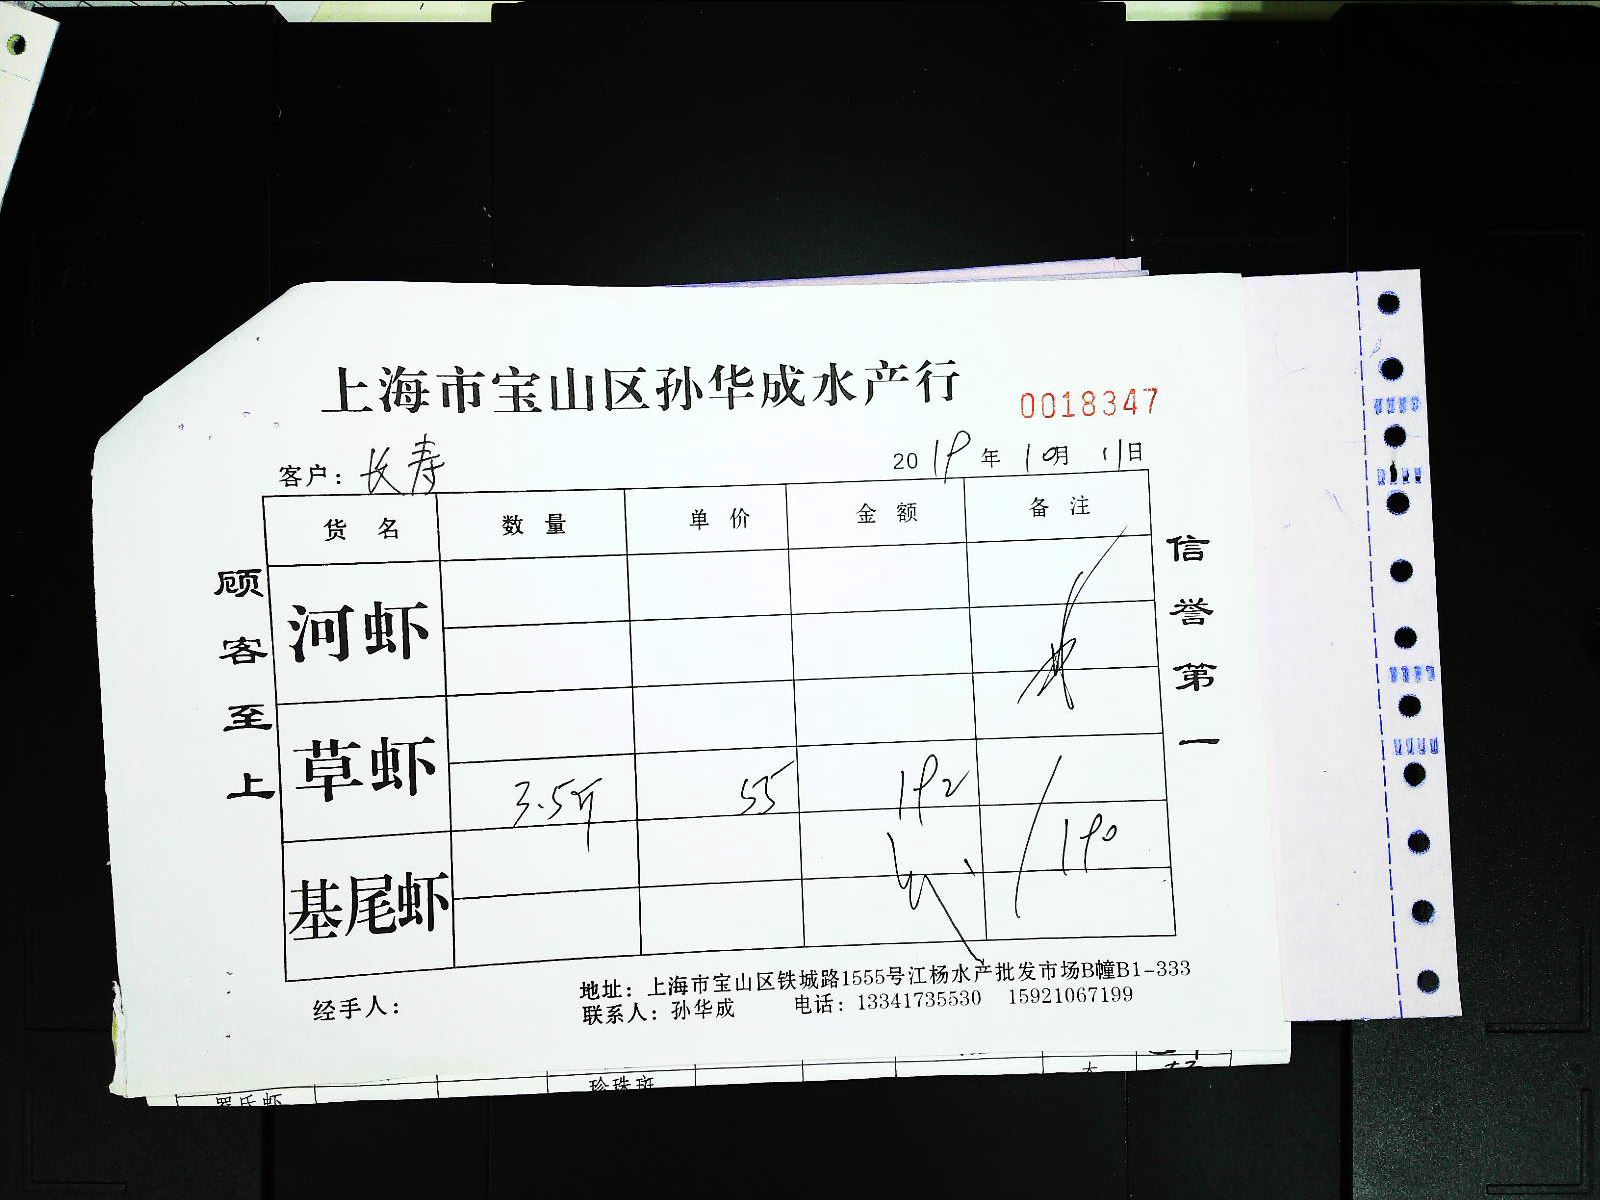 上海市宝山区孙华成水产行
0018347
客户：长寿
2019年10月11日
货名 数量 单价 金额 备注
河虾
草虾 3.5斤 55 192
190
基尾虾
顾客至上
信誉第一
地址：上海市宝山区铁城路1555号江杨水产批发市场B幢B1-333
经手人：
联系人：孙华成 电话：13341735530 15921067199
珍珠斑
罗氏虾